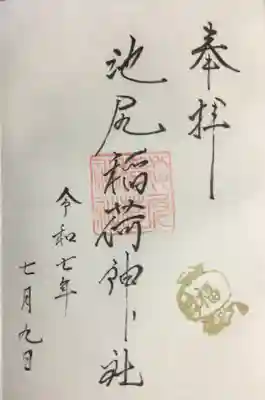 奉拝
池尻稲荷神社
令和七年
七月九日
福